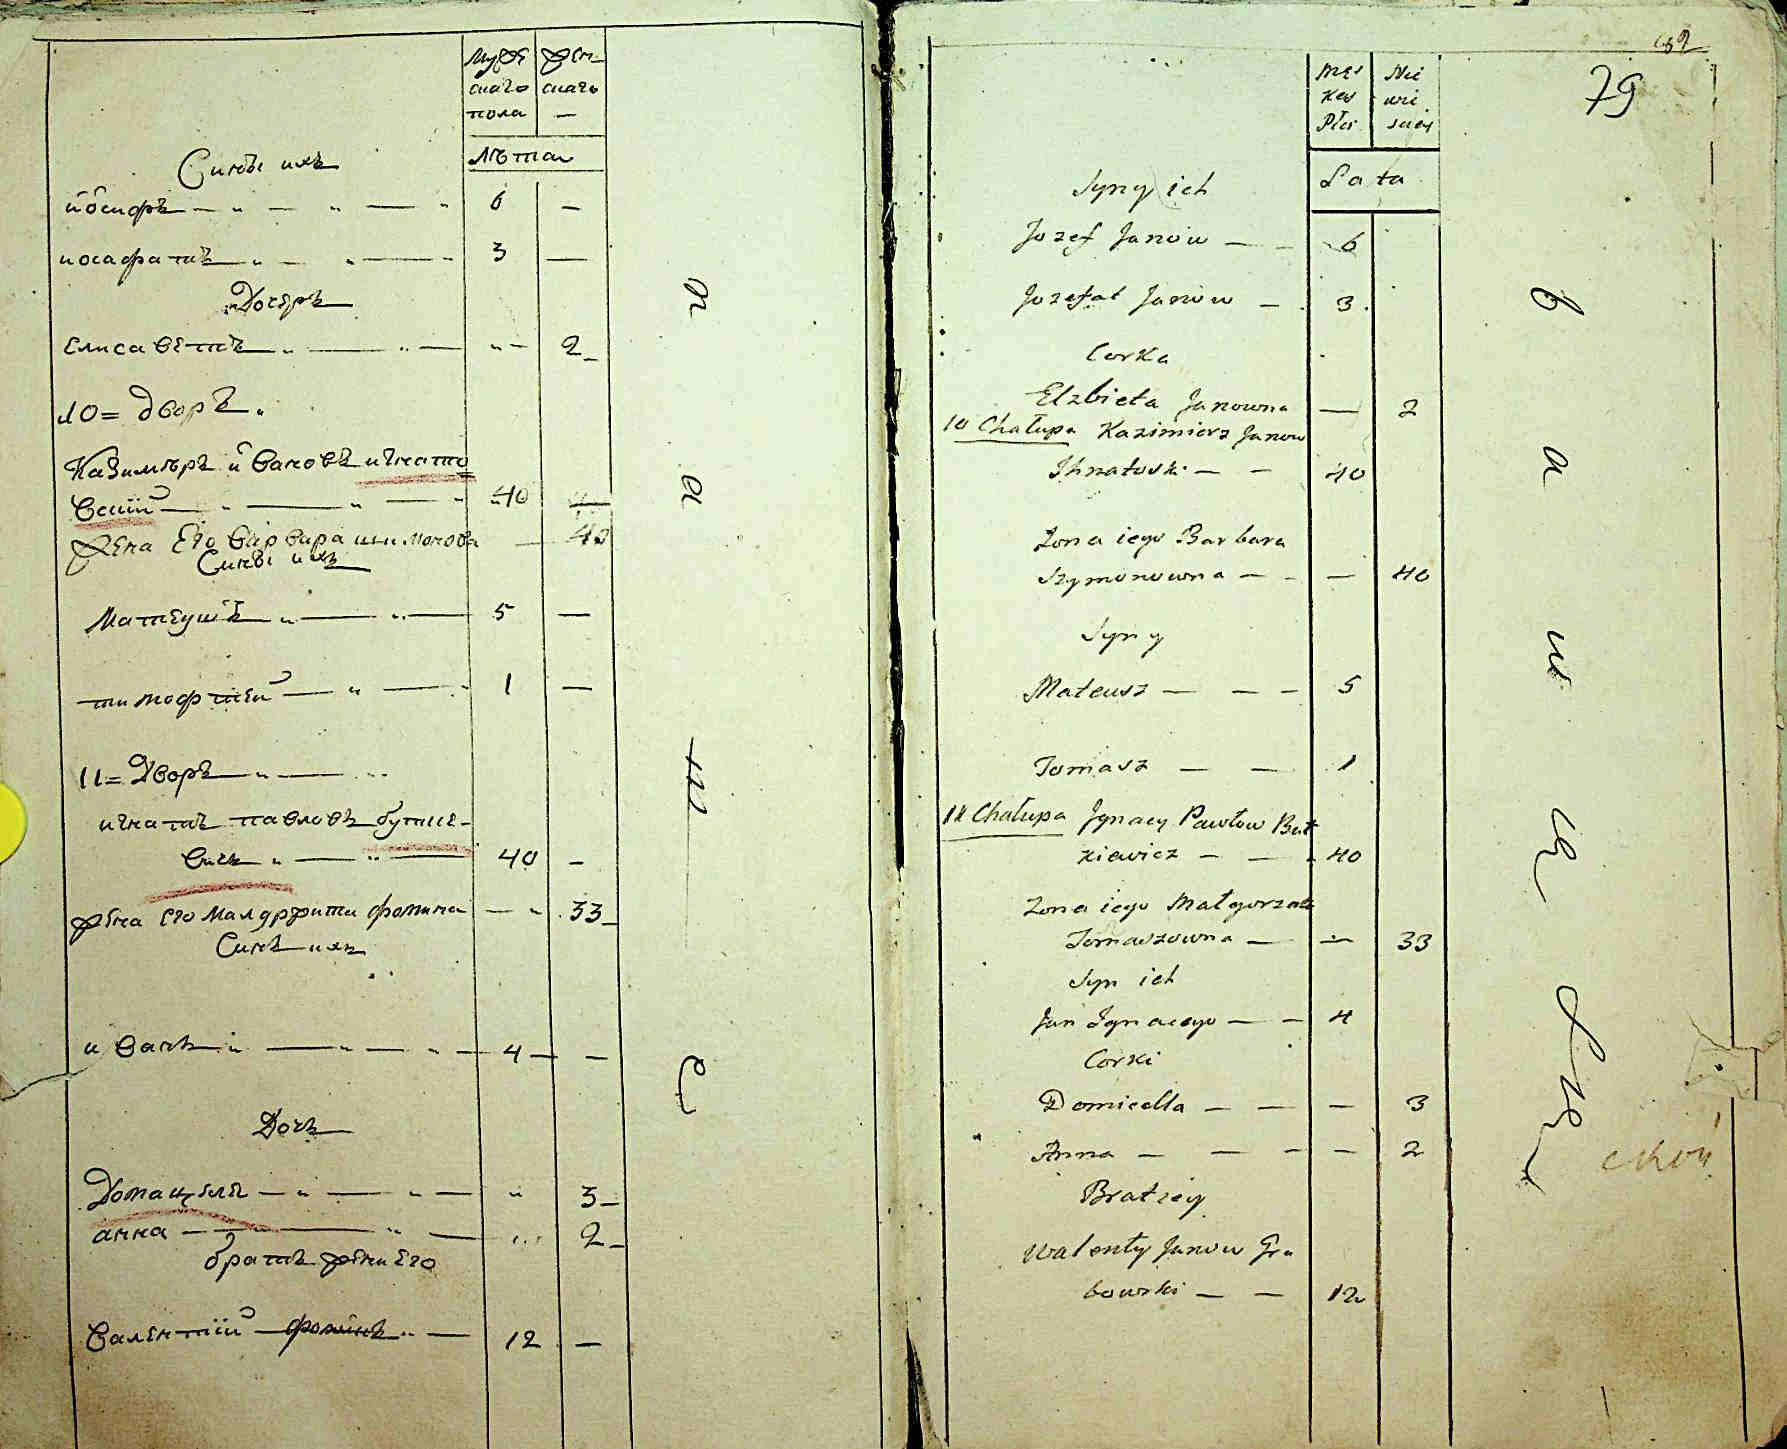 Мужескаго пола
женскаго —
Лѣта
Сыны ихъ
иосифъ — 6 —
иосафатъ — 3 —
Дочеръ
Елисаветъ — 2
10= Дворъ
Казимѣръ Ивановъ игнато
вскій — 40 —
Жена Его варвара шимонова — 40
Сыны ихъ
Матеушъ — 5 —
тимофтей — 1 —
11= Дворъ
игнатъ павловъ бутке-
вичъ — 40 —
жена Его Малгржита фомина — 33
Сынъ ихъ
иванъ — 4 —
Дочъ
Домацеля — 3
анна — 2
братъ жены Его
Валентій фоминъ — 12 —
79
Męs
key
Płci
Nie
wie
sciey
Lata
Syny ich
Jozef Janow — — 6
Jozefat Janow — 3
Corka
Elzbieta Janowna — 2
10 Chałupa Kazimierz Janow
Ihnatowski — — 40
Zona iego Barbara
Szymonowna — — — 40
Syny
Mateusz — — — 5
Tomasz — — 1
11 Chałupa Jgnacy Pawłow But
kiewicz — — 40
Zona iego Małgorzata
Tomaszowna — — 33
Syn ich
Jan Ignacego — — 4
Corki
Domicella — — — 3
Anna — — — — 2
Brat żey
Walenty Janow Gra
bowski — — 12
ской